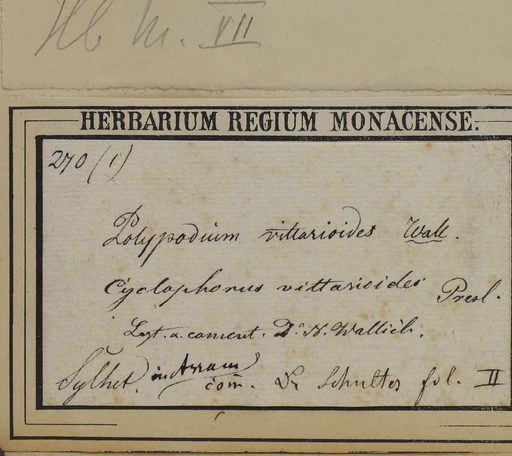 Hb M. VII
HERBARIUM REGIUM MONACENSE.
270 (1)
Polypodium vittarioides Wall.
Cyclophorus vittarioides Presl.
Legt. a. comcut. Dr. N. Wallich.
Sylhet. in Assam
com. Dr Schultes fil. II